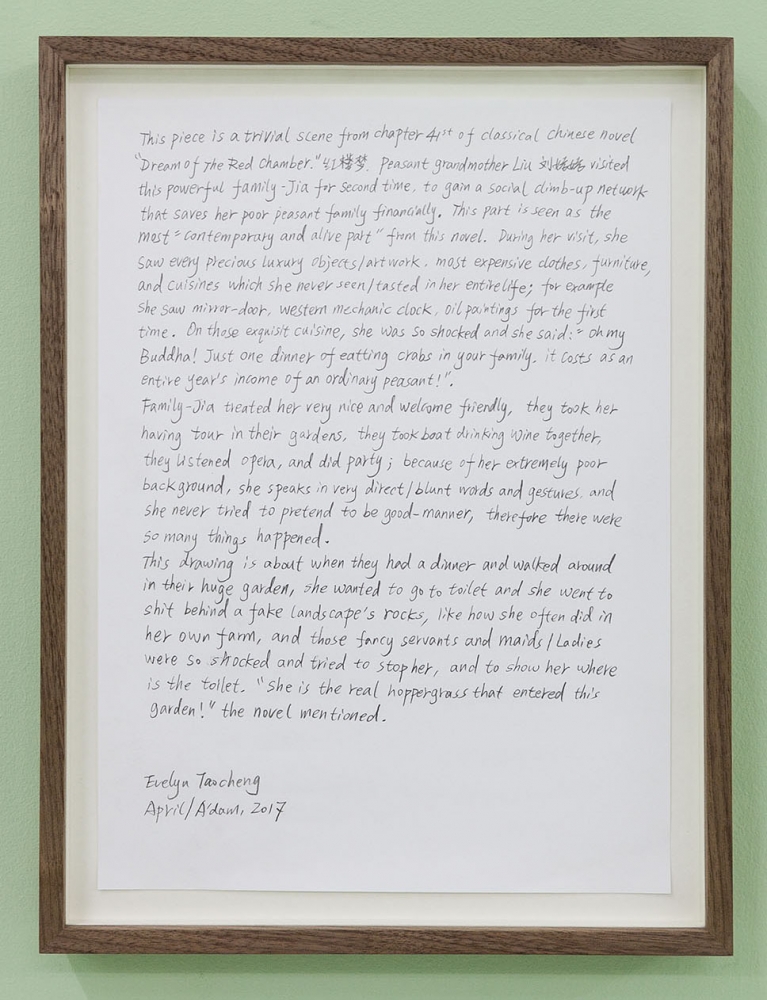 This piece is a trivial scene from chapter 41st of classical chinese novel
"Dream of The Red Chamber." 红楼梦. Peasant grandmother Liu 刘姥姥 visited
this powerful family-Jia for second time, to gain a social climb-up network
that saves her poor peasant family financially. This part is seen as the
most "contemporary and alive part" from this novel. During her visit, she
saw every precious luxury objects/artwork, most expensive clothes, furniture,
and cuisines which she never seen/tasted in her entire life; for example
she saw mirror-door, western mechanic clock, oil paintings for the first
time. On those exquisit cuisine, she was so shocked and she said: "oh my
Buddha! Just one dinner of eatting crabs in your family, it costs as an
entire year's income of an ordinary peasant!".
Family-Jia treated her very nice and welcome friendly, they took her
having tour in their gardens, they took boat drinking wine together,
they listened opera, and did party; because of her extremely poor
background, she speaks in very direct/blunt words and gestures, and
she never tried to pretend to be good-manner, therefore there were
so many things happened.
This drawing is about when they had a dinner and walked around
in their huge garden, she wanted to go to toilet and she went to
shit behind a fake landscape's rocks, like how she often did in
her own farm, and those fancy servants and maids/Ladies
were so shocked and tried to stop her, and to show her where
is the toilet. "She is the real hoppergrass that entered this
garden!" the novel mentioned.
Evelyn Taocheng
April/A'dam, 2017